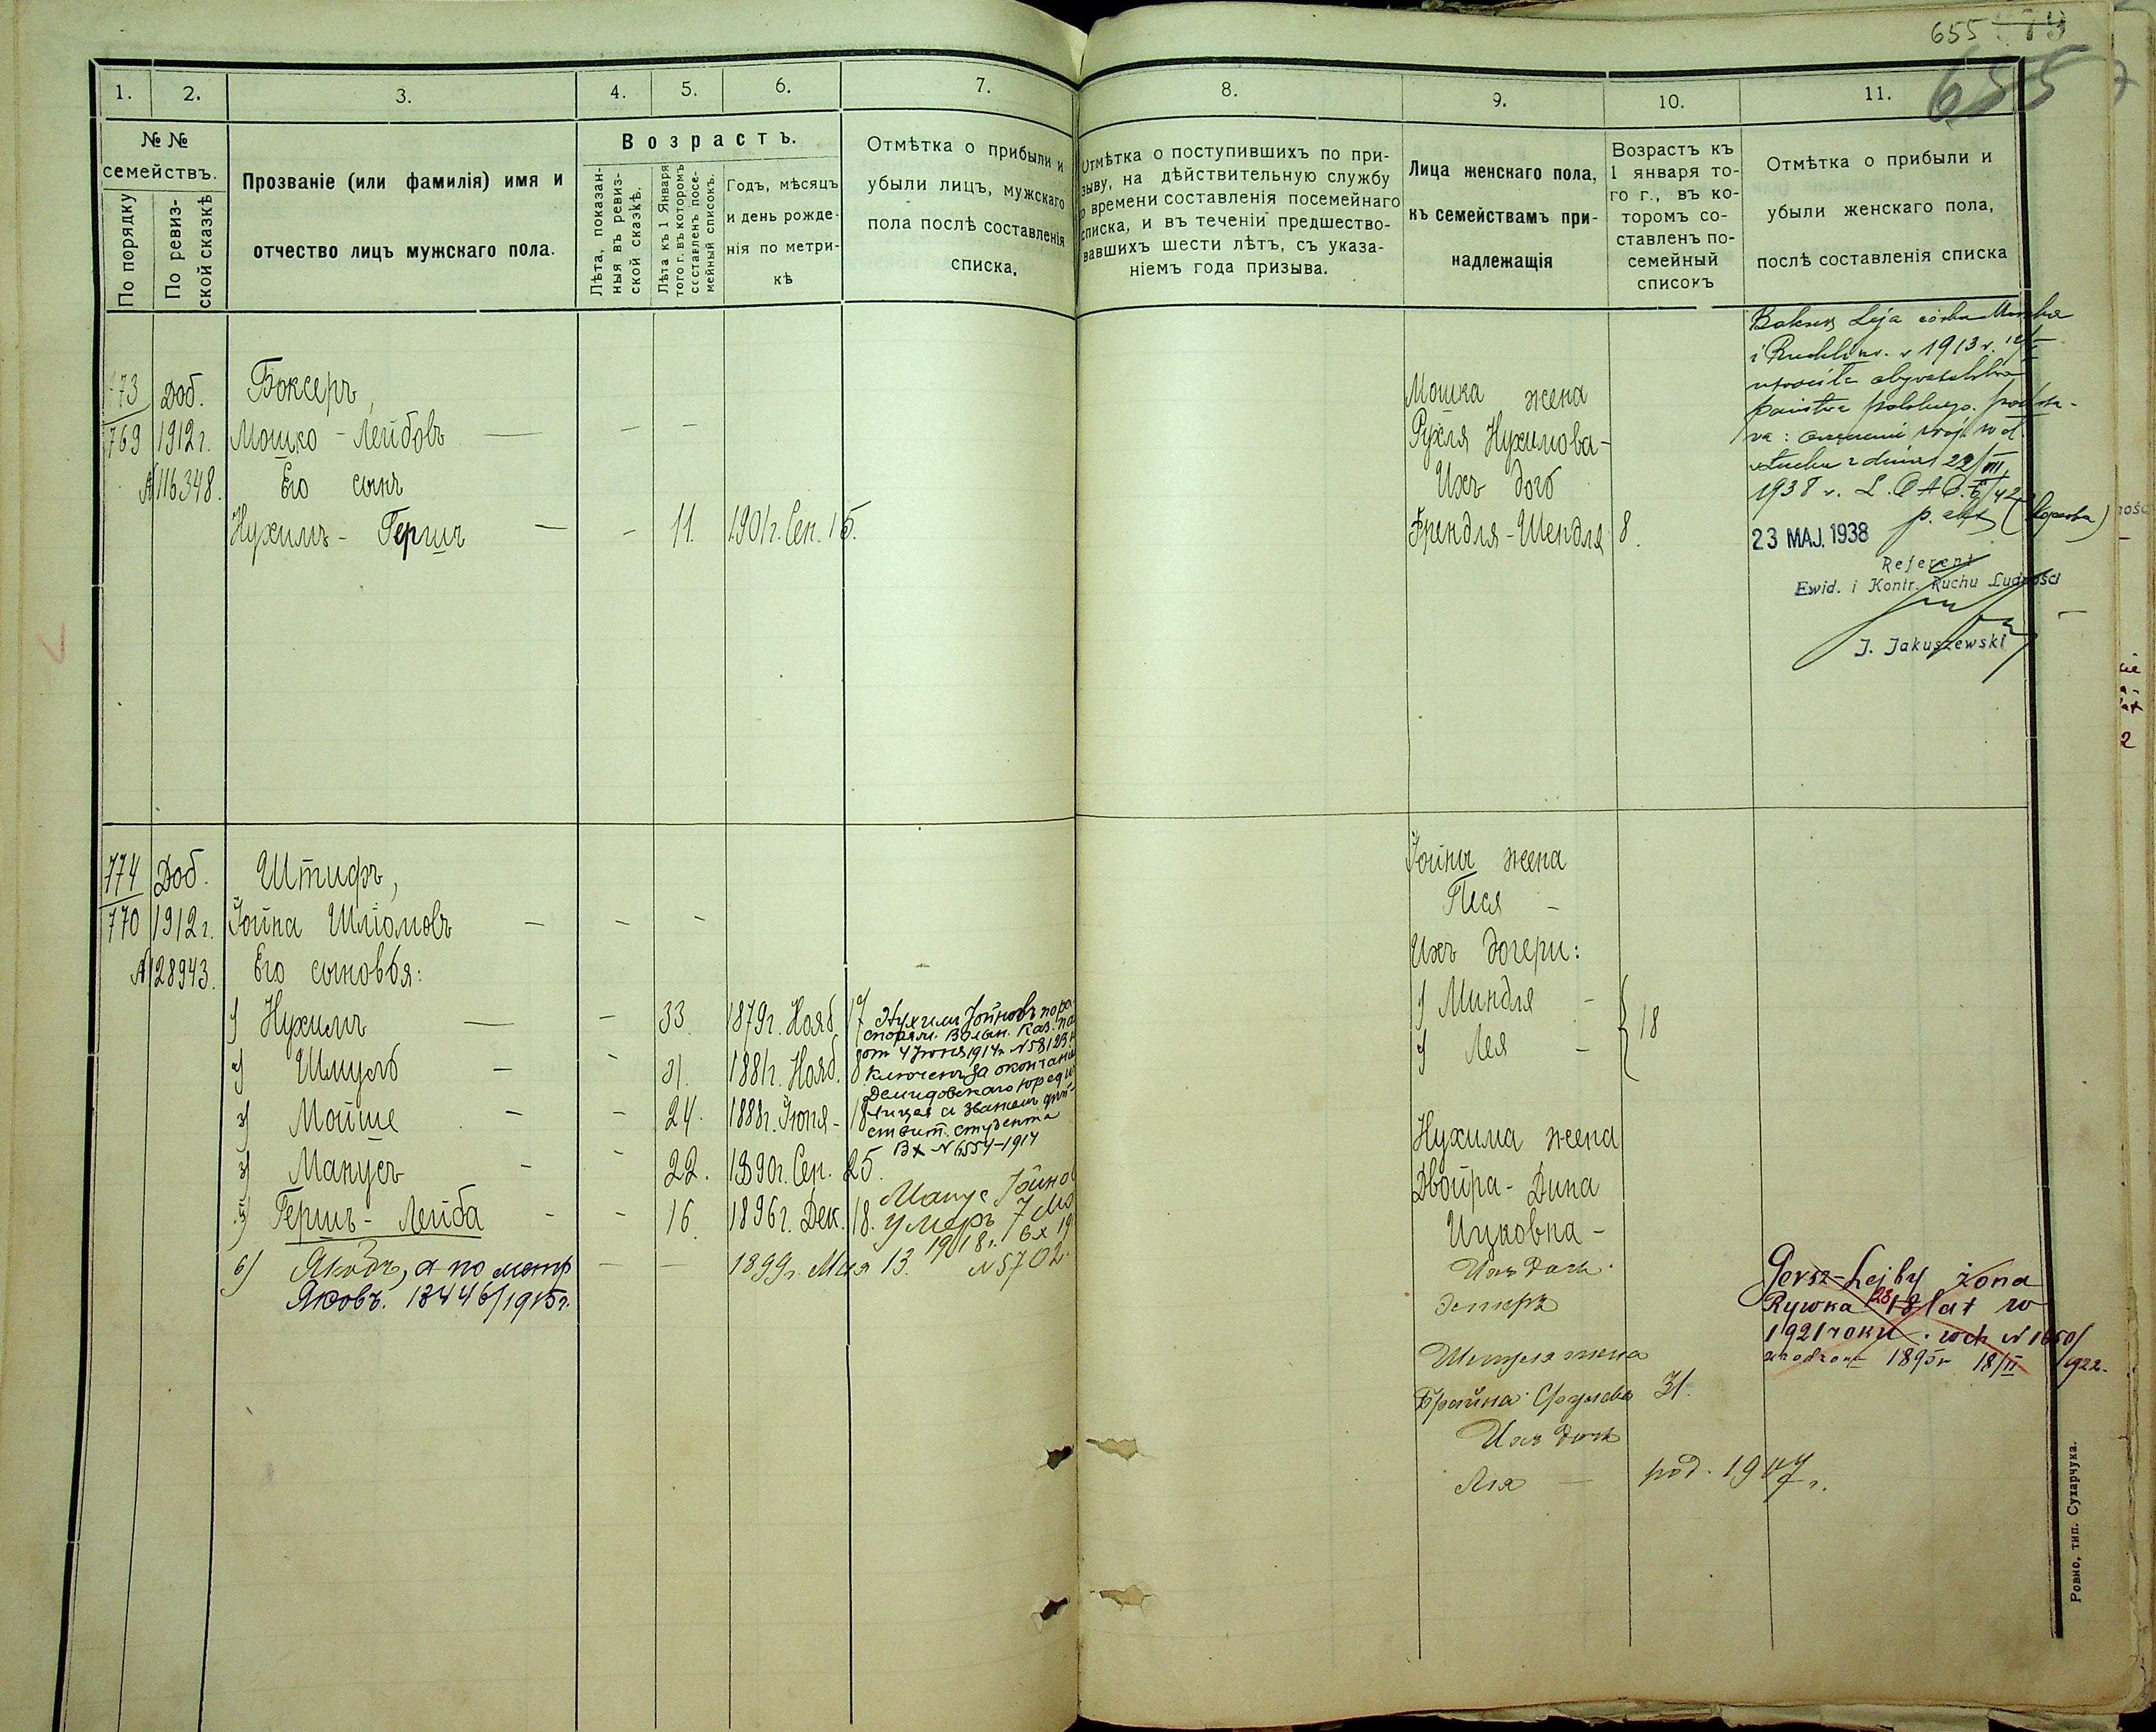 655 79
655
1.
2.
3.
4.
5.
6.
7.
8.
9.
10.
11.
№ №
семействъ.
По порядку
По ревиз-
ской сказкѣ
Прозваніе (или фамилія) имя и
отчество лицъ мужскаго пола.
Возрастъ.
Лѣта, показан-
ныя въ ревиз-
ской сказкѣ.
Лѣта къ 1 Января
того г. въ которомъ
составленъ посе-
мейный списокъ.
Годъ, мѣсяцъ
и день рожде-
нія по метри-
кѣ
Отмѣтка о прибыли и
убыли лицъ, мужскаго
пола послѣ составленія
списка.
Отмѣтка о поступившихъ по при-
зыву, на дѣйствительную службу
о времени составленія посемейнаго
списка, и въ теченіи предшество-
вавшихъ шести лѣтъ, съ указа-
ніемъ года призыва.
Лица женскаго пола,
къ семействамъ при-
надлежащія
Возрастъ къ
1 января то-
го г., въ ко-
торомъ со-
ставленъ по-
семейный
списокъ
Отмѣтка о прибыли и
убыли женскаго пола,
послѣ составленія списка
773
769
Доб.
1912 г.
№ 116348.
Боксеръ,
Мошко - Лейбовъ — - -
Его сынъ
Нухимъ - Гершъ — - 11. 1901г. Сен. 15.
Мошка жена
Рухля Нухимова -
Ихъ дочь
Френдля-Шендля 8.
Leja córka
i Ruchli ur. w 1913 r.
utraciła obywatelstwo
państwa polskiego.
z dnia 22/III
1938 r.
23 MAJ. 1938
Referent
Ewid. i Kontr. Ruchu Ludności
J. Jakuszewski
774
770
Доб.
1912 г.
№ 128943.
Штифъ,
Іойна Шліомовъ — - -
Его сыновья:
1) Нухимъ — - 33. 1879г. Нояб. 17
2) Шмуль - - 31. 1881г. Нояб. 8
3) Мойше - - 24. 1888г. Іюня - 18
4) Манусъ - - 22. 1890г. Сен. 25.
5) Гершъ - Лейба - - 16. 1896г. Дек. 18.
6) Якобъ, а по метр — — 1899г. Мая 13.
Яковъ. 13446/1915г.
Нухимъ Іойновъ по ра-
споряж. Волын. Каз. па
от 4 Іюня 1914 г. № 58123
ключенъ за окончаніе
Демидовскаго юрид
Лицея и званіем дѣй-
ствит. студента
Вх № 6554-1914
Манус Іойнов
умеръ 7
1918 г. Вх 19
№ 5702.
Іойны жена
Песя -
Ихъ дочери:
1) Миндля -
2) Лея -
18
Нухима жена
Двойра - Дина
Ицковна -
Ихъ дочь.
Эстеръ
Шмуля жена
Брайна Сруслева 31.
Ихъ дочь
Лея — род. 1907 г.
Gersz-Lejby żona
Rywka 28 18 lat w
1921 roku. wch № 1650/
urodzona 1895 r 18/II 1922.
Ровно, тип. Сухарчука.